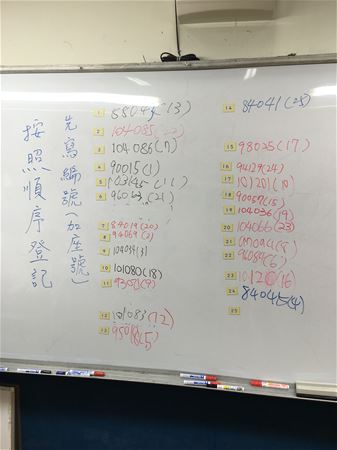 按照順序登記
先寫編號(加座號)
1 88045(13)
2 104085
3 104086(7)
4 90015(1)
5 103145(11)
6 (21)
7 84019(20)
8 94069(2)
9 104034(3)
10 101080(18)
11 (9)
12 101083(12)
13 (5)
14 84041(25)
15 98025(17)
16 94129(24)
17 101201(10)
18 90057(15)
19 104036(19)
20 104066(23)
21 (8)
22 94084(6)
23 (16)
24 84045(4)
25